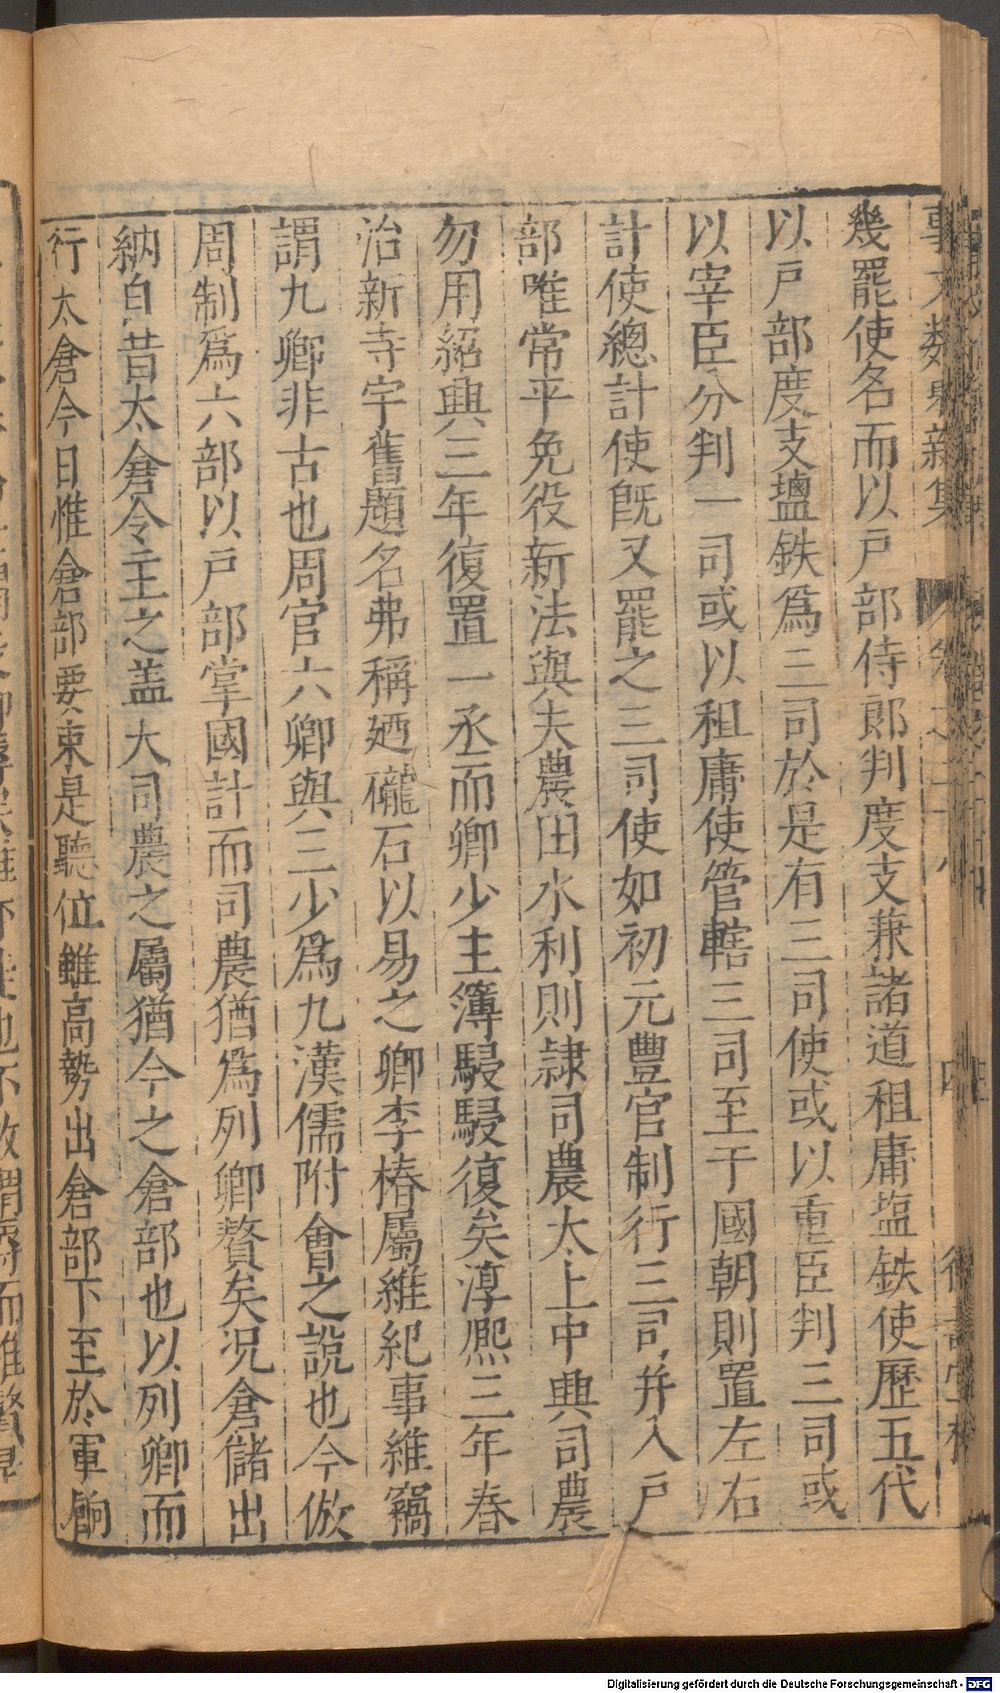 事文類聚新集
幾罷使名而以戸部侍郎判度支兼諸道租庸塩鉄使歷五代
以戸部度支塩鉄爲三司於是有三司使或以重臣判三司或
以宰臣分判一司或以租庸使管轄三司至于國朝則置左右
計使總計使旣又罷之三司使如初元豊官制行三司并入戸
部唯常平免役新法與夫農田水利則隷司農太上中興司農
勿用紹興三年復置一丞而卿少主簿駸駸復矣淳熈三年春
治新寺宇舊題名弗稱廼礲石以易之卿李椿屬維紀事維竊
謂九卿非古也周官六卿與三少爲九漢儒附會之說也今倣
周制爲六部以戸部掌國計而司農猶爲列卿贅矣况倉儲出
納自昔太倉令主之盖大司農之屬猶今之倉部也以列卿而
行太倉今日惟倉部要束是聽位雖高勢出倉部下至於軍餉
Digitalisierung gefördert durch die Deutsche Forschungsgemeinschaft - DFG